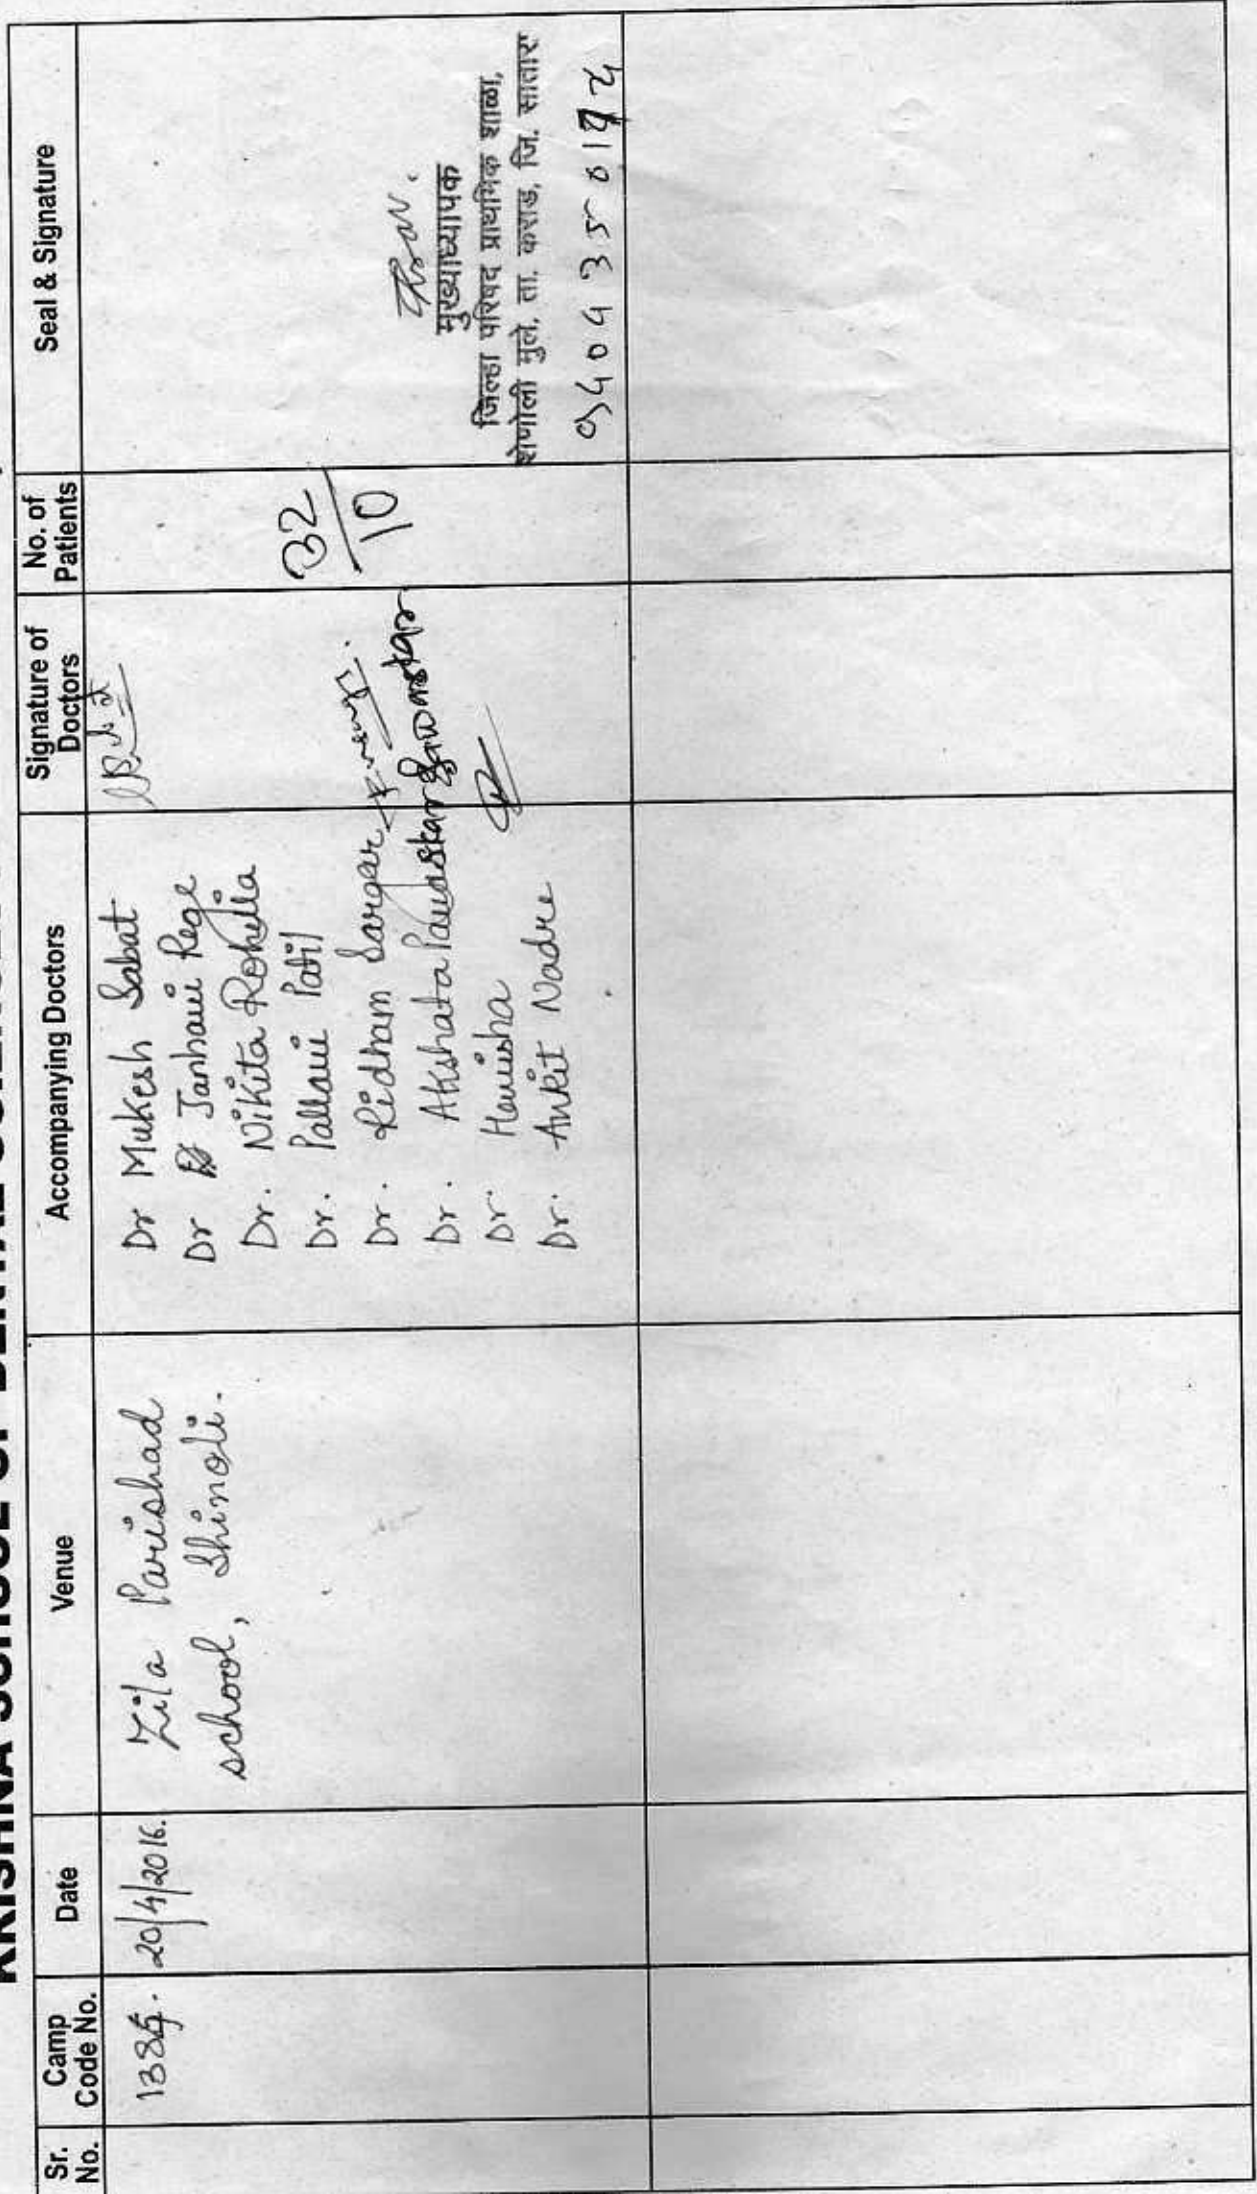 KRISHNA SCHOOL OF DENTAL
Sr. No.
Camp Code No.
Date
Venue
Accompanying Doctors
Signature of Doctors
No. of Patients
Seal & Signature
20/4/2016.
Zila Parishad
school, Shinoli.
Dr Mukesh Sabat
Dr Janhavi Rege
Dr. Nikita Rohilla
Dr. Pallavi Patil
Dr. Ridham Sargar
Dr. Akshata Pawaskar
Dr. Hanisha
Dr. Ankit Nadre
32
10
मुख्याध्यापक
जिल्हा परिषद प्राथमिक शाळा,
शेणोली मुले, ता. कराड, जि. सातारा